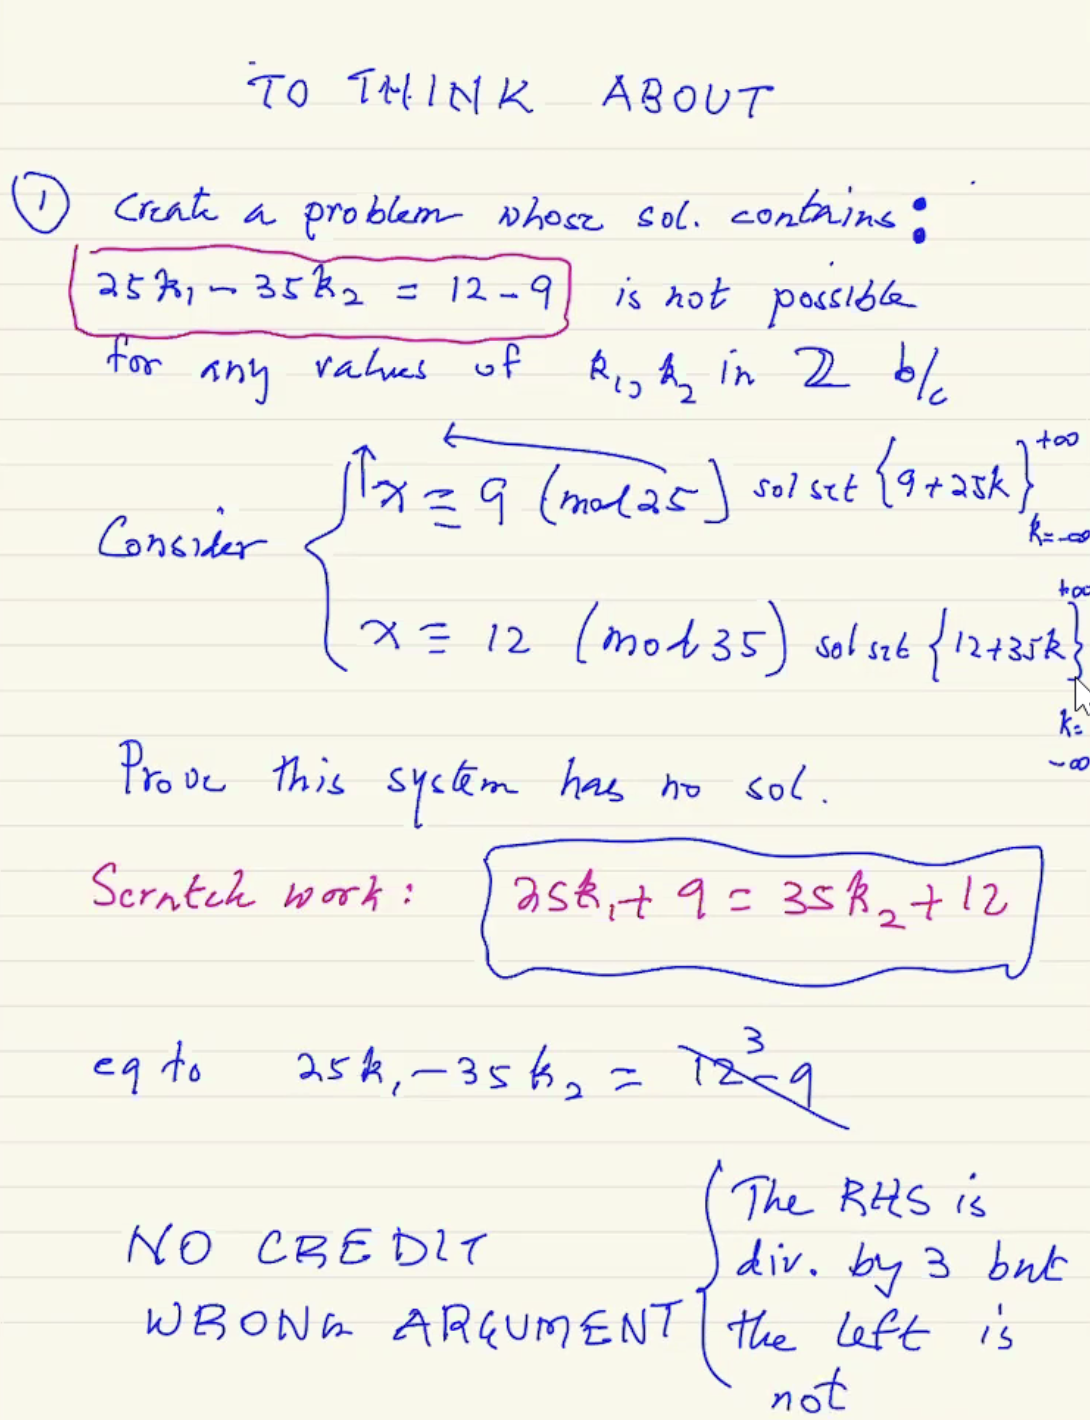 TO THINK ABOUT
① Create a problem whose sol. contains:
25k₁ - 35k₂ = 12 - 9 is not possible
for any values of k₁, k₂ in ℤ b/c
Consider { x ≡ 9 (mod 25) sol set {9+25k}
+∞
k=-∞
x ≡ 12 (mod 35) sol set {12+35k}
+∞
k=
-∞
Prove this system has no sol.
Scratch work: 25k₁ + 9 = 35k₂ + 12
eq to 25k₁ - 35k₂ = 12-9 3
NO CREDIT
WRONG ARGUMENT
{ The RHS is
div. by 3 but
the left is
not